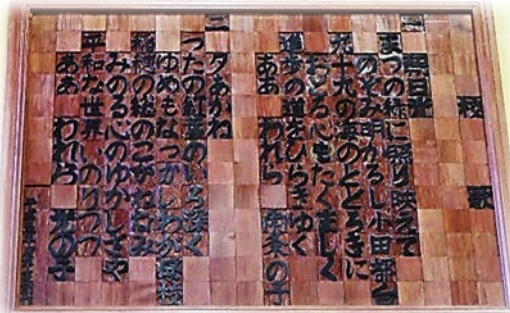 校 歌
一 朝日光
まつの緑に照り映えて
のぞみ明かるし小田都台
九十九の海のとどろきに
おどる心もたくましく
進歩の道をひらきゆく
ああ われら 未来の子
二 夕あかね
つたの紅葉のいろ深く
ゆめもなつかしわが母校
稲穂の のこがねなみ
みのる心のゆかしさや
平和な世界いのりつつ
ああ われら 光の子